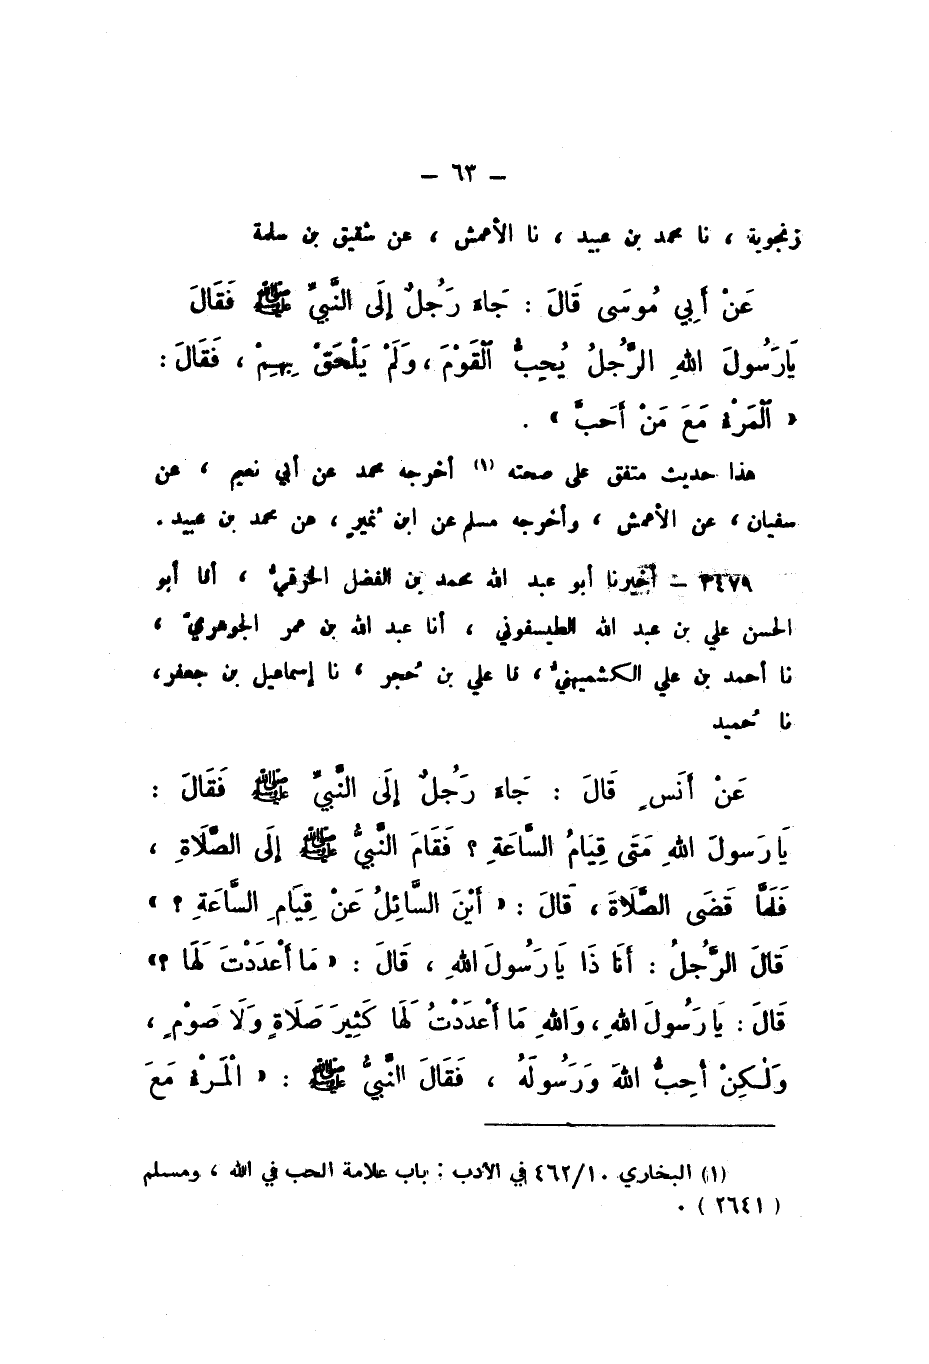 – ٦٣ –
زنجوية ، نا محمد بن عبيد ، نا الأعمش ، عن شقيق بن سلمة
عَنْ أَبِي مُوسَى قَالَ : جَاءَ رَجُلٌ إِلَى النَّبِيِّ ﷺ فَقَالَ
يَارَسُولَ اللهِ الرَّجُلُ يُحِبُّ ٱلْقَوْمَ ، وَلَمْ يَلْحَقْ بِهِمْ ، فَقَالَ :
« ٱلْمَرْءُ مَعَ مَنْ أَحَبَّ » .
هذا حديث متفق على صحته (١) أخرجه محمد عن أبي نعيم ، عن
سفيان ، عن الأعمش ، وأخرجه مسلم عن ابن نُميرٍ ، عن محمد بن عبيد .
٣٤٧٩ – أخبرنا أبو عبد الله محمد بن الفضل الخرقيُّ ، أنا أبو
الحسن علي بن عبد الله الطيسفوني ، أنا عبد الله بن عمر الجوهريُّ ،
نا أحمد بن علي الكشميهنيُّ ، نا علي بن حُجر ، نا إسماعيل بن جعفر ،
نا حُميد
عَنْ أَنَسٍ قَالَ : جَاءَ رَجُلٌ إِلَى النَّبِيِّ ﷺ فَقَالَ :
يَا رَسولَ اللهِ مَتَى قِيَامُ السَّاعَةِ ؟ فَقَامَ النَّبِيُّ ﷺ إِلَى الصَّلَاةِ ،
فَلَمَّا قَضَى الصَّلَاةَ ، قَالَ : « أَيْنَ السَّائِلُ عَنْ قِيَامِ السَّاعَةِ ؟ »
قَالَ الرَّجُلُ : أَنَا ذَا يَا رَسُولَ اللهِ ، قَالَ : « مَا أَعْدَدْتَ لَهَا ؟»
قَالَ : يَا رَسُولَ اللهِ ، وَاللهِ مَا أَعْدَدْتُ لَهَا كَثِيرَ صَلَاةٍ وَلَا صَوْمٍ ،
وَلٰكِنْ أُحِبُّ اللهَ وَرَسُولَهُ ، فَقَالَ النَّبِيُّ ﷺ : « الْمَرْءُ مَعَ
(١) البخاري ٤٦٢/١٠ في الأدب : باب علامة الحب في الله ، ومسلم
( ٢٦٤١ ) .